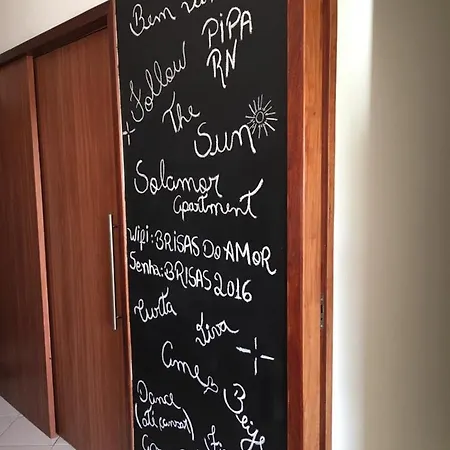 Bem
PiPA
RN
Follow
The
Sun
Solamor
apartment
wifi: BRISAS DO AMOR
Senha: BRISAS 2016
Curta
Viva
Ame
Beije
Dance
(até cansar)